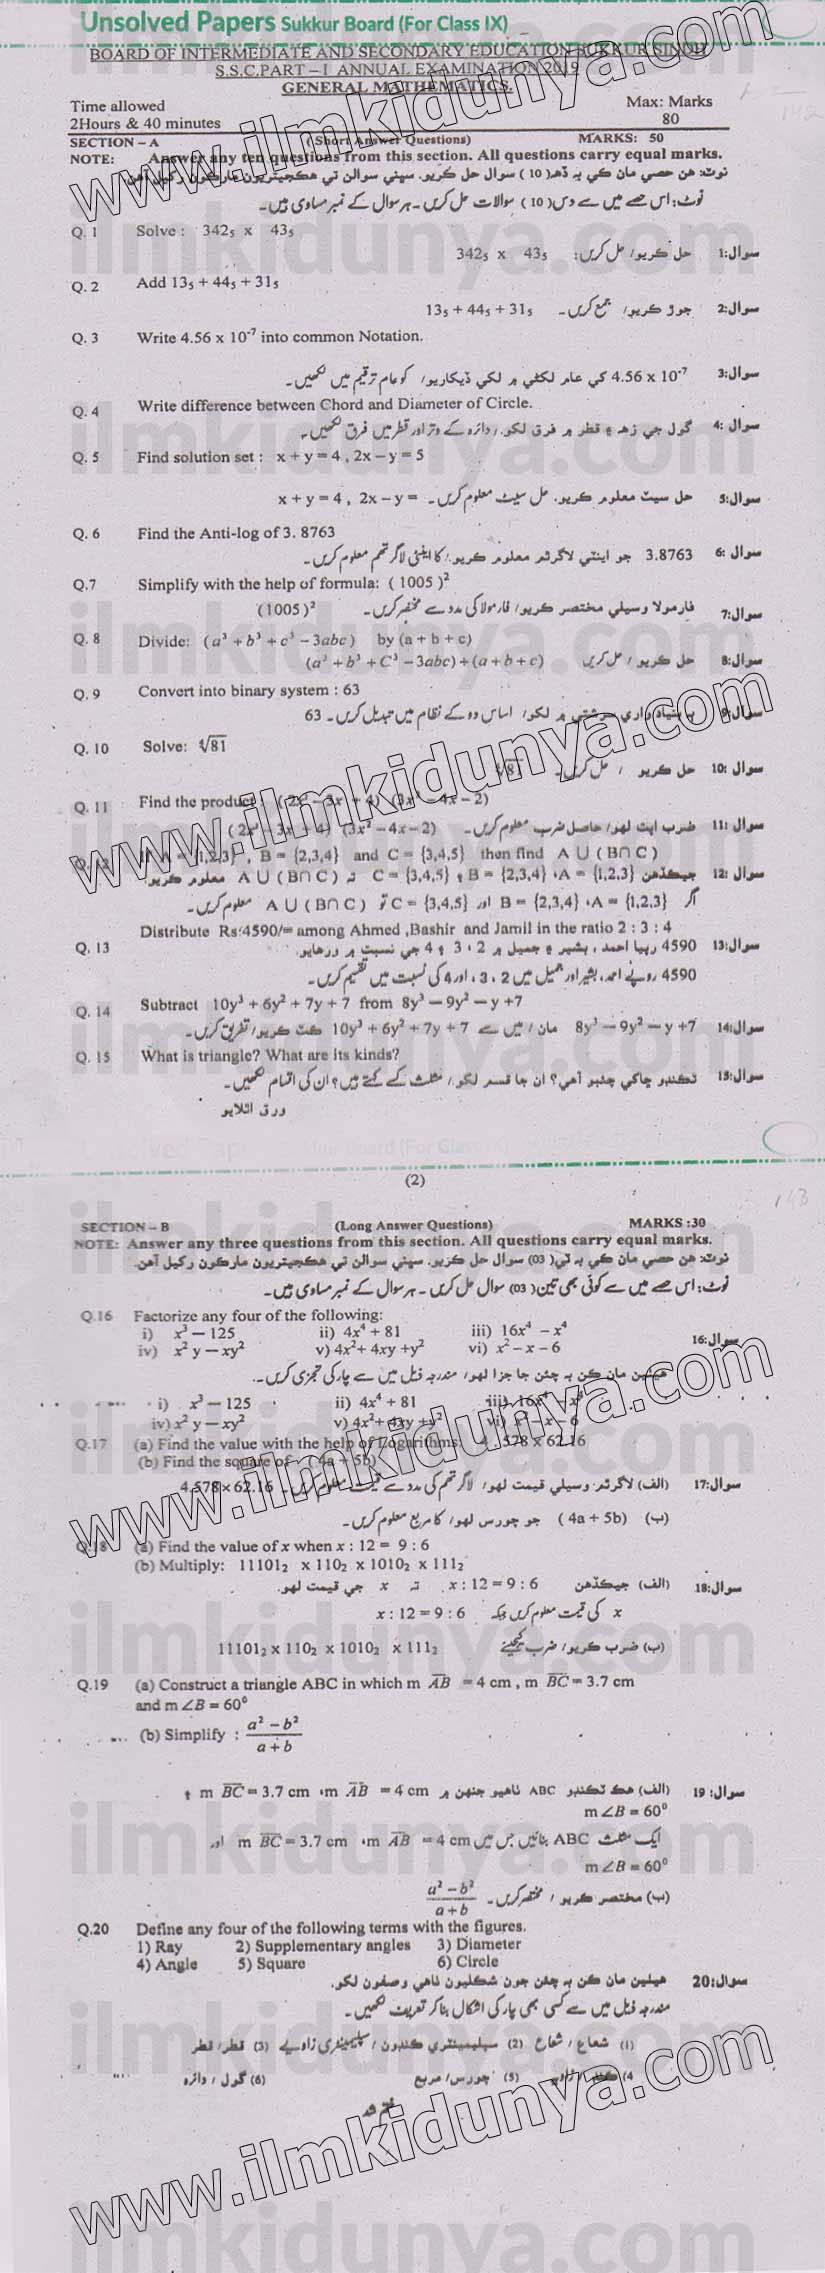 Unsolved Papers Sukkur Board (For Class IX)
BOARD OF INTERMEDIATE AND SECONDARY EDUCATION SUKKUR SINDH
S.S.C.PART – I ANNUAL EXAMINATION 2019
GENERAL MATHEMATICS.
Time allowed Max: Marks
2Hours & 40 minutes 80
SECTION – A (Short Answer Questions) MARKS: 50
NOTE: Answer any ten questions from this section. All questions carry equal marks.
نوٽ: هن حصي مان ڪي به ڏهه (10) سوال حل ڪريو. سڀني سوالن تي هڪجيتريون مارڪون رکيل آهن.
نوٹ: اس حصے میں سے دس (10) سوالات حل کریں۔ ہر سوال کے نمبر مساوی ہیں۔
Q. 1 Solve : 342₅ x 43₅
سوال:1 حل ڪريو/ حل کریں: 342₅ x 43₅
Q. 2 Add 13₅ + 44₅ + 31₅
سوال:2 جوڙ ڪريو/ جمع کریں۔ 13₅ + 44₅ + 31₅
Q. 3 Write 4.56 x 10⁻⁷ into common Notation.
سوال:3 4.56 x 10⁻⁷ کي عام لکڻي ۾ لکي ڏيکاريو/ کو عام ترقیم میں لکھیں۔
Q. 4 Write difference between Chord and Diameter of Circle.
سوال:4 گول جي زهه ۽ قطر ۾ فرق لکو. / دائرہ کے وتر اور قطر میں فرق لکھیں۔
Q. 5 Find solution set : x + y = 4 , 2x – y = 5
سوال:5 حل سيٽ معلوم ڪريو. حل سیٹ معلوم کریں۔ x + y = 4 , 2x – y =
Q. 6 Find the Anti-log of 3. 8763
سوال:6 3.8763 جو اينٽي لاگرٿم معلوم ڪريو. / کا اینٹی لاگرتھم معلوم کریں۔
Q.7 Simplify with the help of formula: ( 1005 )²
سوال:7 فارمولا وسيلي مختصر ڪريو/ فارمولا کی مدد سے مختصر کریں۔ (1005 )²
Q. 8 Divide: (a³ + b³ + c³ – 3abc) by (a + b + c)
سوال:8 حل ڪريو / حل کریں (a³ + b³ + C³ – 3abc) ÷ (a + b + c)
Q. 9 Convert into binary system : 63
سوال:9 ٻه بنياد واري سرشتي ۾ لکو/ اساس دو کے نظام میں تبدیل کریں۔ 63
Q. 10 Solve: ∜81
سوال:10 حل ڪريو / حل کریں۔ ∜81
Q. 11 Find the product : (2x² – 3x + 4) (3x² – 4x – 2)
سوال:11 ضرب اپت لهو/ حاصل ضرب معلوم کریں۔ (2x² – 3x + 4) (3x² – 4x – 2)
Q. 12 If A = {1,2,3} , B = {2,3,4} and C = {3,4,5} then find A U ( B∩ C)
سوال:12 جيڪڏهن A = {1,2,3}، B = {2,3,4} ۽ C = {3,4,5} ته A U ( B∩ C ) معلوم ڪريو.
اگر A = {1,2,3}، B = {2,3,4} اور C = {3,4,5} تو A U ( B∩ C ) معلوم کریں۔
Distribute Rs:4590/= among Ahmed ,Bashir and Jamil in the ratio 2 : 3 : 4
Q. 13
سوال:13 4590 رپيا احمد، بشير ۽ جميل ۾ 2، 3 ۽ 4 جي نسبت ۾ ورهايو.
4590 روپے احمد، بشیر اور جمیل میں 2، 3، اور 4 کی نسبت میں تقسیم کریں۔
Q. 14 Subtract 10y³ + 6y² + 7y + 7 from 8y³ – 9y² – y +7
سوال:14 8y³ – 9y² – y +7 مان / میں سے 10y³ + 6y² + 7y + 7 ڪٽ ڪريو/ تفریق کریں۔
Q. 15 What is triangle? What are its kinds?
سوال:15 ٽڪنڊو ڇاکي چئبو آهي؟ ان جا قسم لکو / مثلث کسے کہتے ہیں؟ ان کی اقسام لکھیں۔
ورق اٿلايو
(2)
SECTION – B (Long Answer Questions) MARKS :30
NOTE: Answer any three questions from this section. All questions carry equal marks.
نوٽ: هن حصي مان ڪي به ٽي (03) سوال حل ڪريو. سڀني سوالن تي هڪجيتريون مارڪون رکيل آهن.
نوٹ: اس حصے میں سے کوئی بھی تین (03) سوال حل کریں۔ ہر سوال کے نمبر مساوی ہیں۔
Q.16 Factorize any four of the following:
i) x³ – 125 ii) 4x⁴ + 81 iii) 16x⁴ – x⁴
iv) x² y – xy² v) 4x²+ 4xy +y² vi) x² – x – 6
سوال:16
هيٺين مان ڪن به چئن جا جزا لهو/ مندرجہ ذیل میں سے چار کی تجزی کریں۔
i) x³ – 125 ii) 4x⁴ + 81 iii) 16x⁴ – x⁴
iv) x² y – xy² v) 4x²+ 4xy +y² vi) x² – x – 6
Q.17 (a) Find the value with the help of Logarithms: 4 .578 x 62.16
(b) Find the square of ( 4a + 5b)
سوال:17 (الف) لاگرٿم وسيلي قيمت لهو/ لاگرتھم کی مدد سے قیمت معلوم کریں۔ 4.578 x 62.16
(ب) ( 4a + 5b) جو چورس لهو/ کا مربع معلوم کریں۔
Q.18 (a) Find the value of x when x : 12 = 9 : 6
(b) Multiply: 11101₂ x 110₂ x 1010₂ x 111₂
سوال:18 (الف) جيڪڏهن x : 12 = 9 : 6 ته x جي قيمت لهو.
x کی قیمت معلوم کریں جبکہ x : 12 = 9 : 6
(ب) ضرب ڪريو/ ضرب کیجئے 11101₂ x 110₂ x 1010₂ x 111₂
Q.19 (a) Construct a triangle ABC in which m AB = 4 cm , m BC = 3.7 cm
and m ∠B = 60⁰
(b) Simplify : (a² – b²)/(a + b)
سوال:19 (الف) هڪ ٽڪنڊو ABC ٺاهيو جنهن ۾ m AB = 4 cm، m BC = 3.7 cm ۽
m ∠B = 60⁰
ایک مثلث ABC بنائیں جس میں m AB = 4 cm، m BC = 3.7 cm اور
m ∠B = 60⁰
(ب) مختصر ڪريو / مختصر کریں۔ (a² – b²)/(a + b)
Q.20 Define any four of the following terms with the figures.
1) Ray 2) Supplementary angles 3) Diameter
4) Angle 5) Square 6) Circle
سوال:20 هيٺين مان ڪن به چئن جون شڪليون ٺاهي وصفون لکو.
مندرجہ ذیل میں سے کسی بھی چار کی اشکال بنا کر تعریف لکھیں۔
(1) شعاع / شعاع (2) سپليمينٽري ڪنڊون / سپلیمینٹری زاویے (3) قطر/ قطر
(5) چورس/ مربع (6) گول / دائرہ
ختم شد
www.ilmkidunya.com
ilmkidunya.com